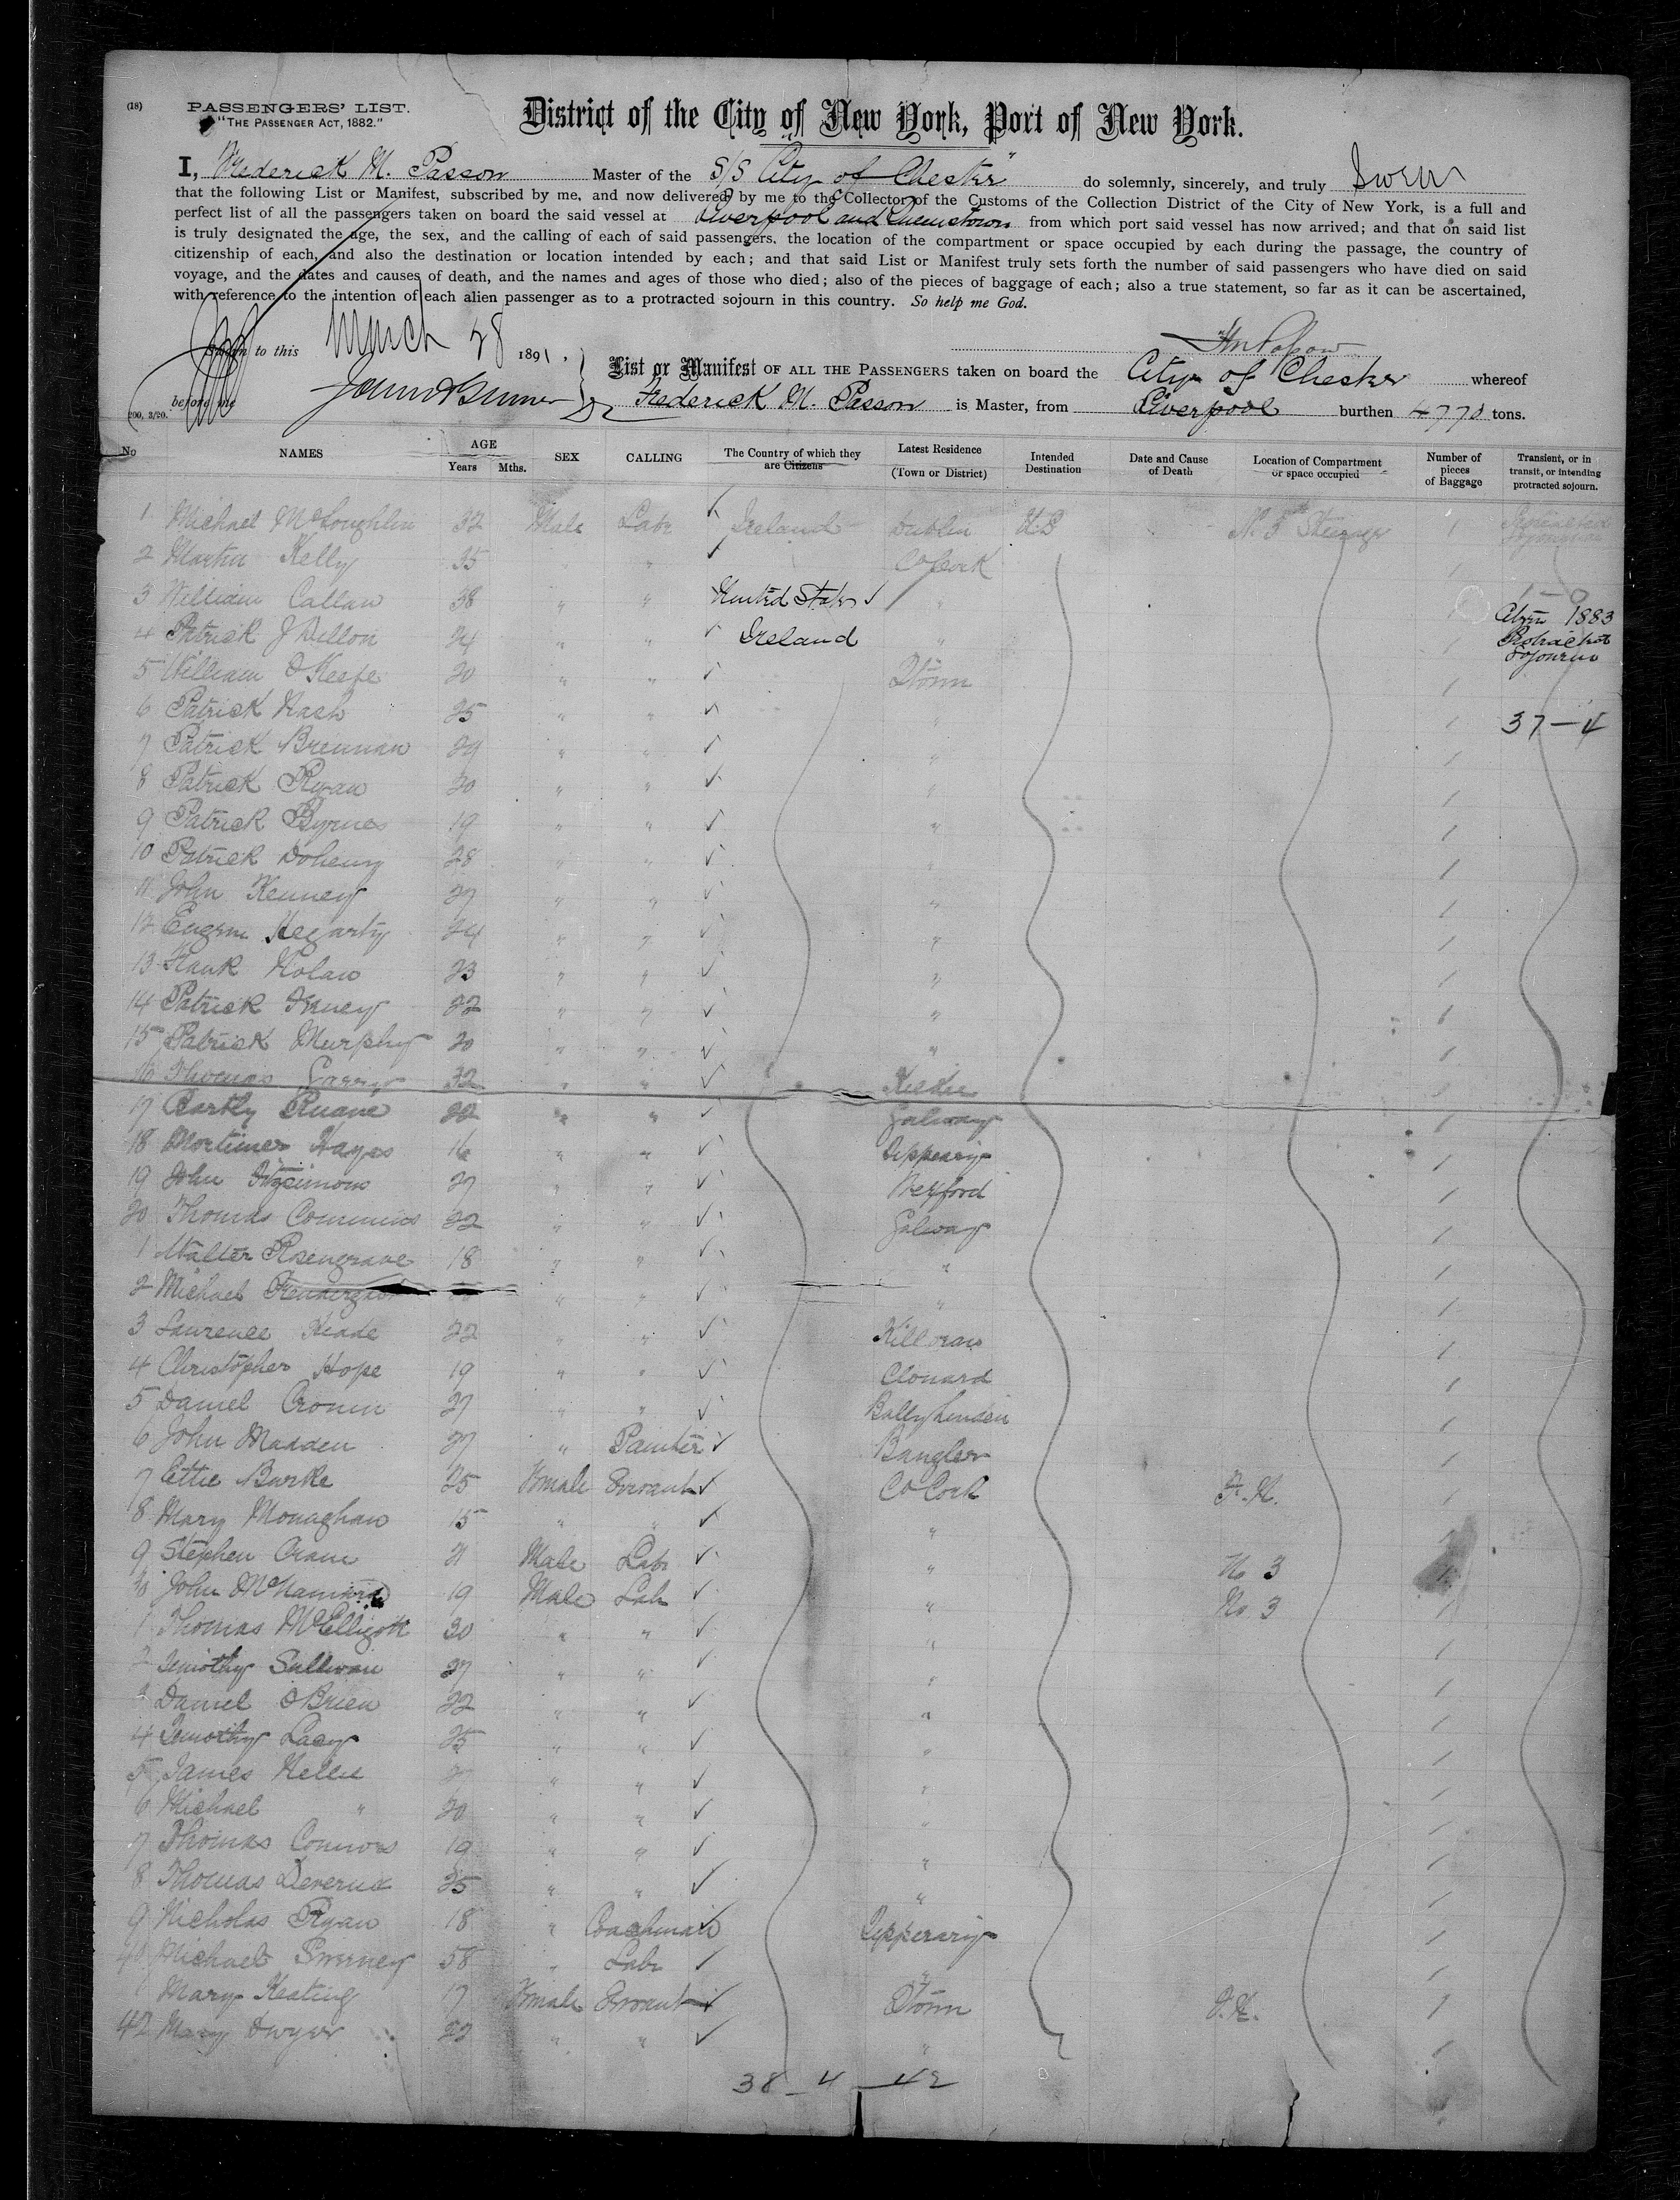 (18)
PASSENGERS' LIST.
"THE PASSENGER ACT, 1882."
District of the City of New York, Port of New York.
I, Frederick M. Passow Master of the S/S City of Chester" do solemnly, sincerely, and truly Swear
that the following List or Manifest, subscribed by me, and now delivered by me to the Collector of the Customs of the Collection District of the City of New York, is a full and
perfect list of all the passengers taken on board the said vessel at Liverpool and Queenstown from which port said vessel has now arrived; and that on said list
is truly designated the age, the sex, and the calling of each of said passengers, the location of the compartment or space occupied by each during the passage, the country of
citizenship of each, and also the destination or location intended by each; and that said List or Manifest truly sets forth the number of said passengers who have died on said
voyage, and the dates and causes of death, and the names and ages of those who died; also of the pieces of baggage of each; also a true statement, so far as it can be ascertained,
with reference to the intention of each alien passenger as to a protracted sojourn in this country. So help me God.
Sworn to this March 28 1891.
before me
200, 3/20.
List or Manifest OF ALL THE PASSENGERS taken on board the City of Chester whereof
Frederick M. Passow is Master, from Liverpool burthen 4770 tons.
No NAMES AGE Years Mths. SEX CALLING The Country of which they are Citizens Latest Residence (Town or District) Intended Destination Date and Cause of Death Location of Compartment or space occupied Number of pieces of Baggage Transient, or in transit, or intending protracted sojourn.
1 Michael McLoughlin 32 Male Labr ✓ Ireland Dublin U.S. No 3 Steerage 1 Protracted Sojourn
2 Martin Kelly 35 " " ✓ Co Cork 1
3 William Callan 38 " " United States ✓ " 1 1-0 Citzn 1883
4 Patrick J Dillon 24 " " ✓ Ireland " 1 Protracted Sojourn
5 William O'Keefe 20 " " ✓ Qtown 1
6 Patrick Nash 25 " " ✓ " 1 37-4
7 Patrick Brennan 24 " " ✓ " 1
8 Patrick Ryan 20 " " ✓ " 1
9 Patrick Byrnes 19 " " ✓ " 1
10 Patrick Doheny 28 " " ✓ " 1
11 John Kenney 27 " " ✓ " 1
12 Eugene Hegarty 24 " " ✓ " 1
13 Frank Nolan 23 " " ✓ " 1
14 Patrick 22 " " ✓ " 1
15 Patrick Murphy 20 " " ✓ " 1
16 Thomas 32 " " ✓ 1
17 Bartly Ruane 22 " " ✓ Galway 1
18 Mortimer Hayes 16 " " ✓ Tipperary 1
19 John Fitzsimons 27 " " ✓ Wexford 1
20 Thomas Commins 22 " " ✓ Galway 1
1 Walter Rosengrave 18 " " ✓ " 1
2 Michael Prendergast " " ✓ " 1
3 Laurence Keade 22 " " ✓ Killoran 1
4 Christopher Hope 19 " " ✓ Clonard 1
5 Daniel Cronin 27 " " ✓ 1
6 John Madden 27 " Painter ✓ 1
7 Ettie Burke 25 Female Servant ✓ Co Cork 1
8 Mary Monaghan 15 " " ✓ " 1
9 Stephen Crane 21 Male Labr ✓ " No 3 1
30 John McNamara 19 Male Labr ✓ " No 3 1
1 Thomas McElligott 30 " " ✓ " 1
2 Timothy Sullivan 27 " " ✓ " 1
3 Daniel O'Brien 22 " " ✓ " 1
4 Timothy Lacy 25 " " ✓ " 1
5 James " " ✓ " 1
6 Michael " 20 " " ✓ " 1
7 Thomas Connors 19 " " ✓ " 1
8 Thomas Devereux 25 " " ✓ " 1
9 Nicholas Ryan 18 " Coachman ✓ Tipperary 1
40 Michael Sweeney 58 " Labr ✓ " 1
1 Mary Keating 17 Female Servant ✓ Qtown 1
42 Mary Dwyer 22 " " ✓ " 1
38-4 42